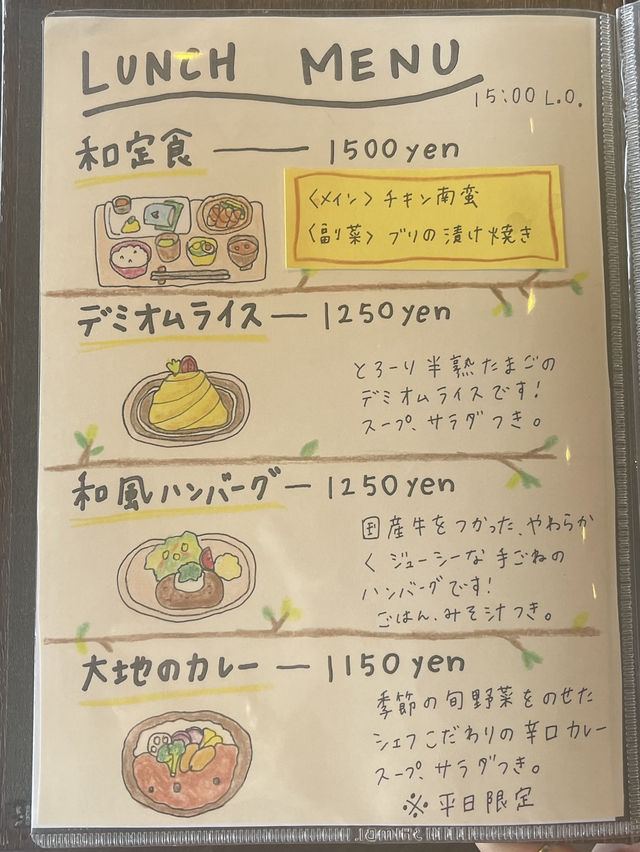 LUNCH MENU
15:00 L.O.
和定食 — 1500yen
〈メイン〉チキン南蛮
〈副菜〉ブリの漬け焼き
デミオムライス — 1250yen
とろーり半熟たまごの
デミオムライスです!
スープ、サラダつき。
和風ハンバーグ — 1250yen
国産牛をつかった、やわらか
くジューシーな手ごねの
ハンバーグです!
ごはん、みそ汁つき。
大地のカレー — 1150yen
季節の旬野菜をのせた
シェフこだわりの辛口カレー
スープ、サラダつき。
※平日限定